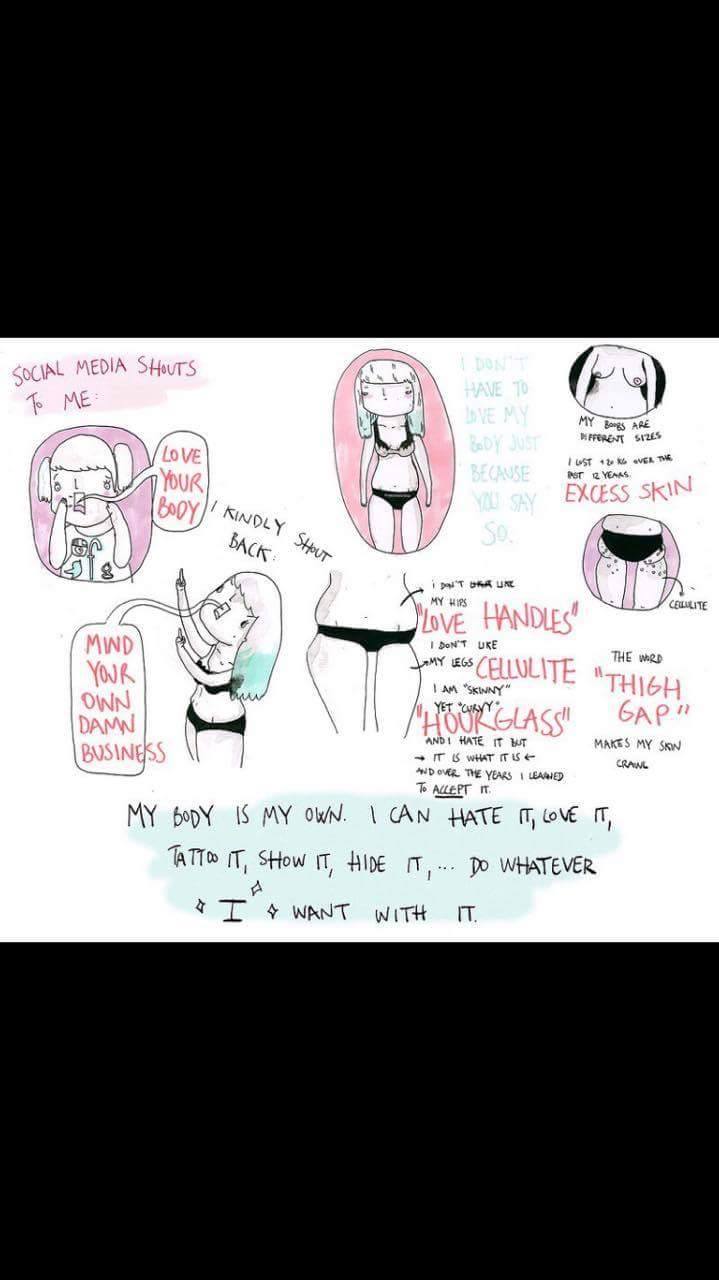 SOCIAL MEDIA SHOUTS
TO ME:
LOVE
YOUR
BODY
I KINDLY SHOUT
BACK:
MIND
YOUR
OWN
DAMN
BUSINESS
I DON'T
HAVE TO
LOVE MY
BODY JUST
BECAUSE
YOU SAY
SO.
MY BOOBS ARE
DIFFERENT SIZES
I LOST +20 KG OVER THE
PAST 12 YEARS
EXCESS SKIN
CELLULITE
I DON'T LIKE
MY HIPS
"LOVE HANDLES"
I DON'T LIKE
MY LEGS CELLULITE
I AM "SKINNY"
YET "CURVY"
"HOURGLASS"
AND I HATE IT BUT
→ IT IS WHAT IT IS ←
AND OVER THE YEARS I LEARNED
TO ACCEPT IT.
THE WORD
"THIGH
GAP"
MAKES MY SKIN
CRAWL
MY BODY IS MY OWN. I CAN HATE IT, LOVE IT,
TATTOO IT, SHOW IT, HIDE IT, ... DO WHATEVER
I WANT WITH IT.